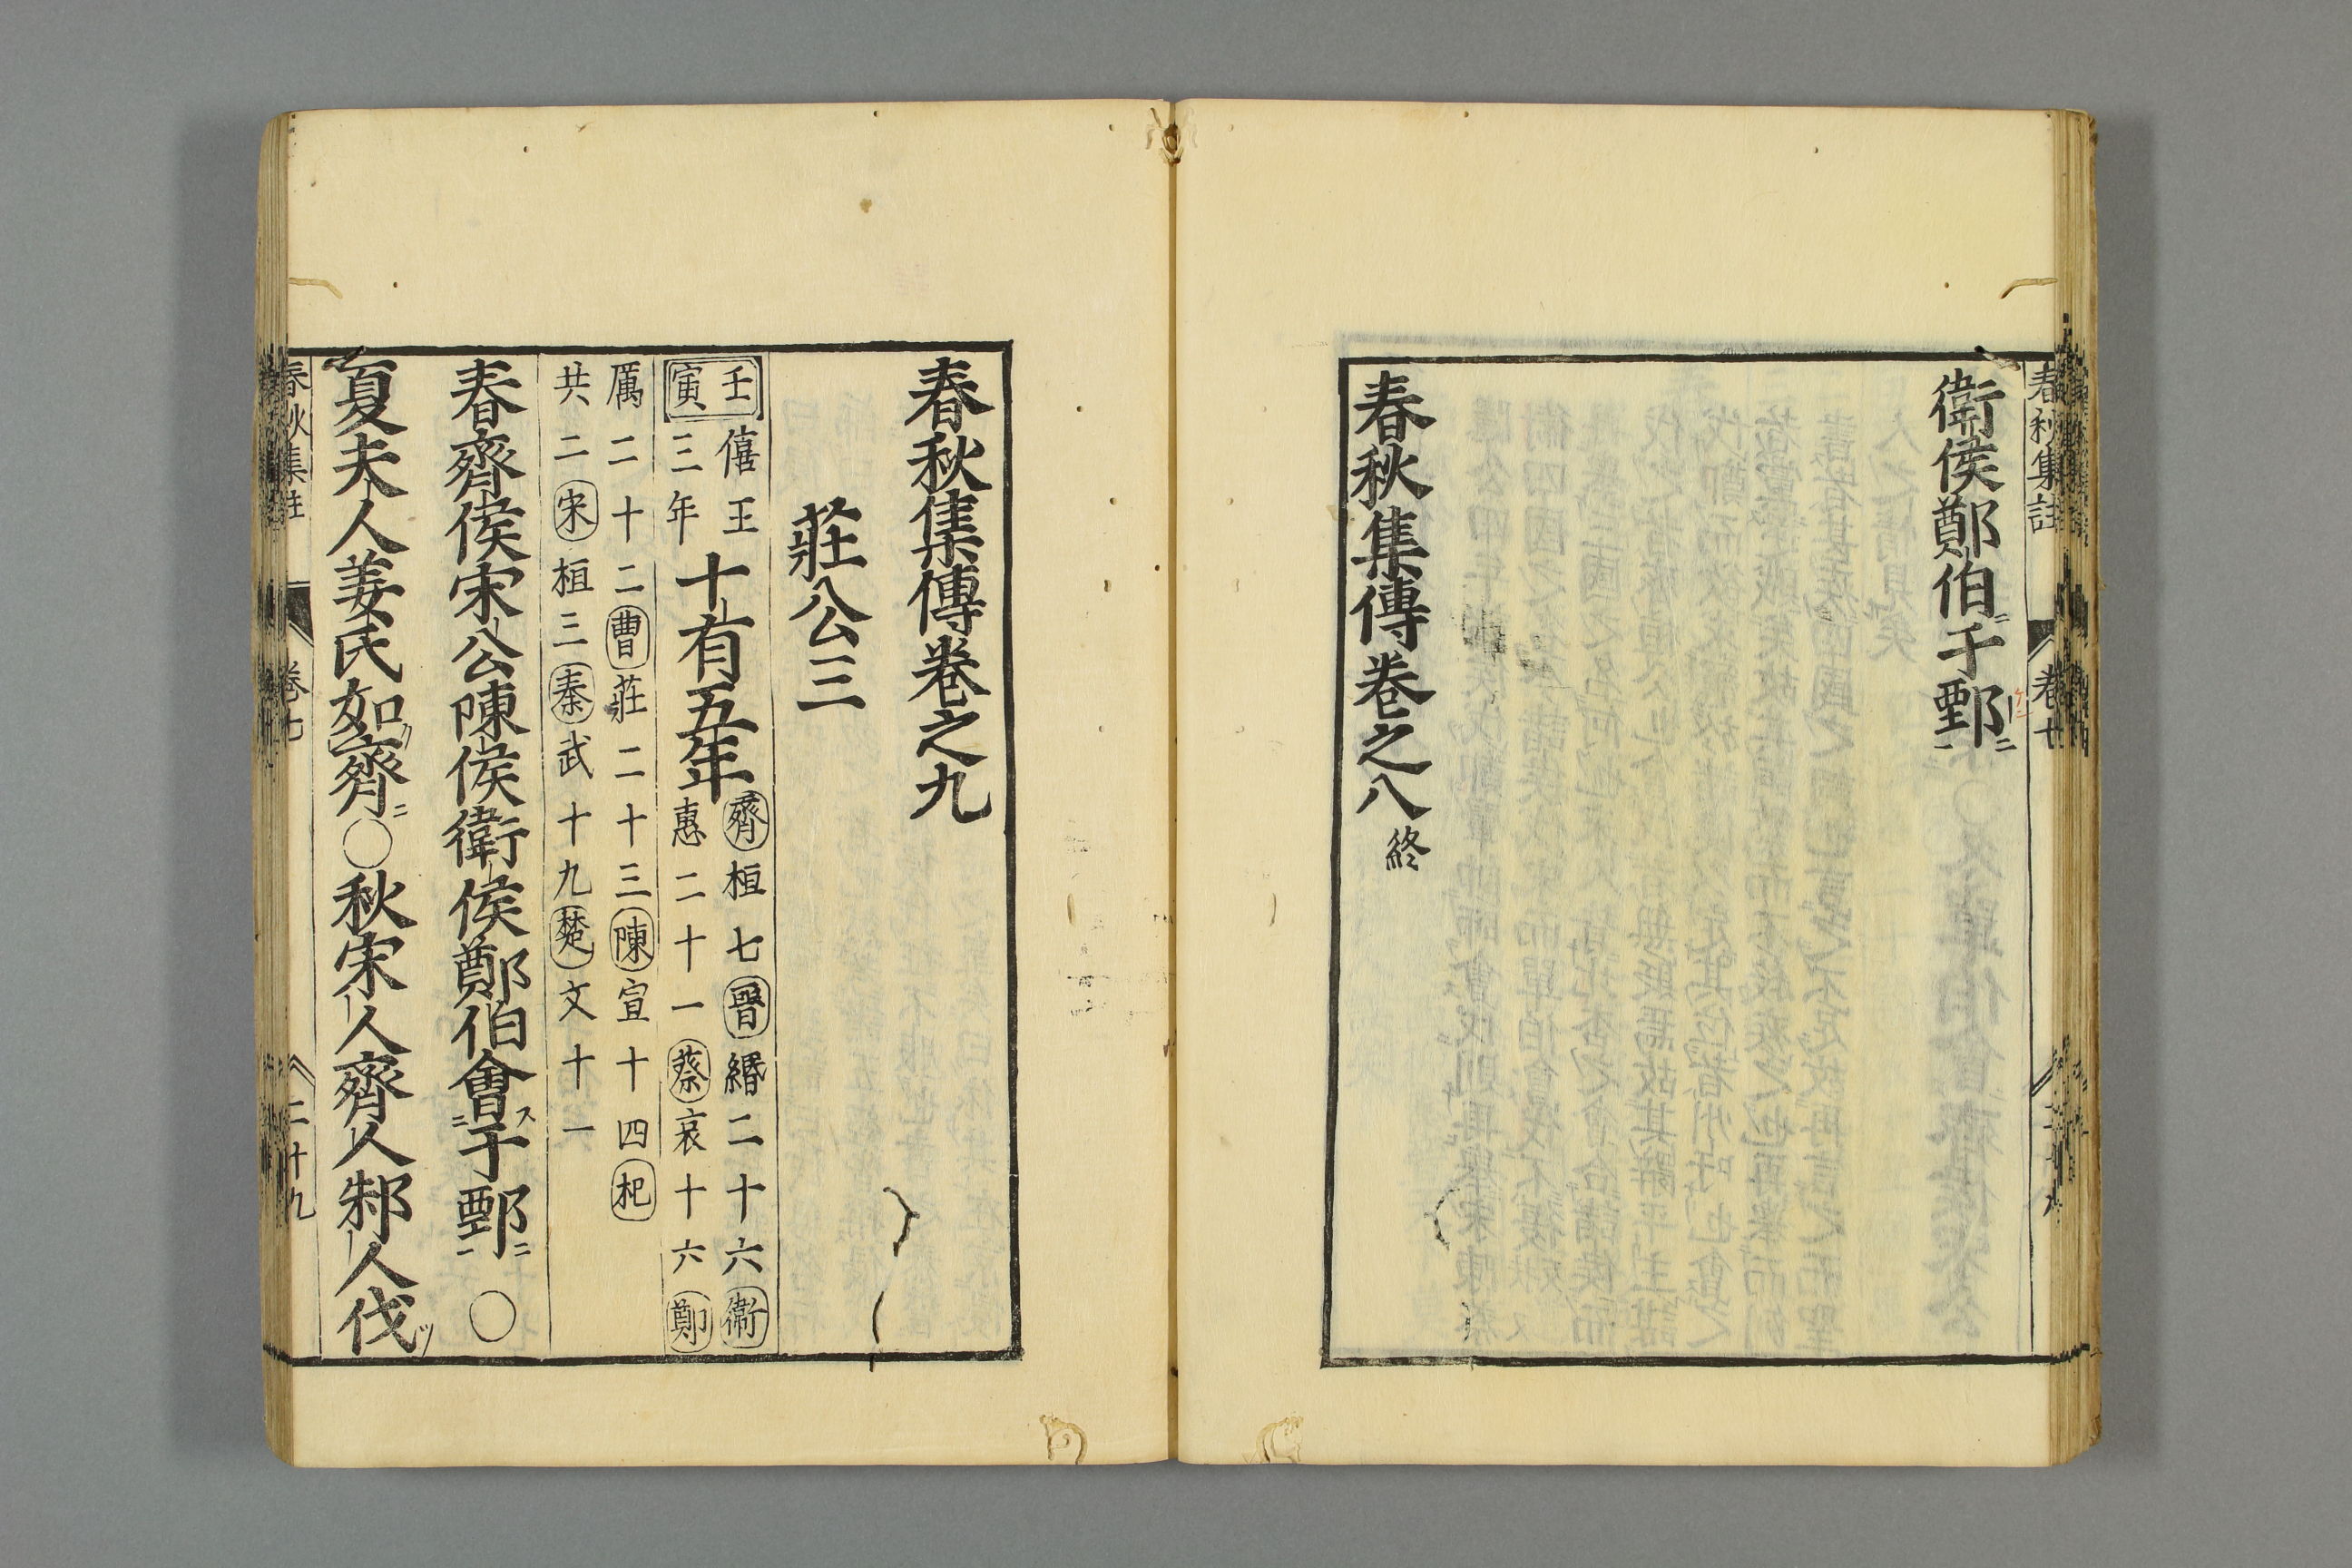 衛侯鄭伯于鄄
春秋集傳卷之八 終
春秋集註 卷七
春秋集傳卷之九
莊公三
壬寅 僖王三年 十有五年 齊桓七 晉緡二十六 衛
惠二十一 蔡哀十六 鄭
厲二十二 曹莊二十三 陳宣十四 杞
共二 宋桓三 秦武十九 楚文十一
春齊侯宋公陳侯衛侯鄭伯會于鄄 ○
夏夫人姜氏如齊 ○ 秋宋人齊人邾人伐
春秋集註 卷七 二十九